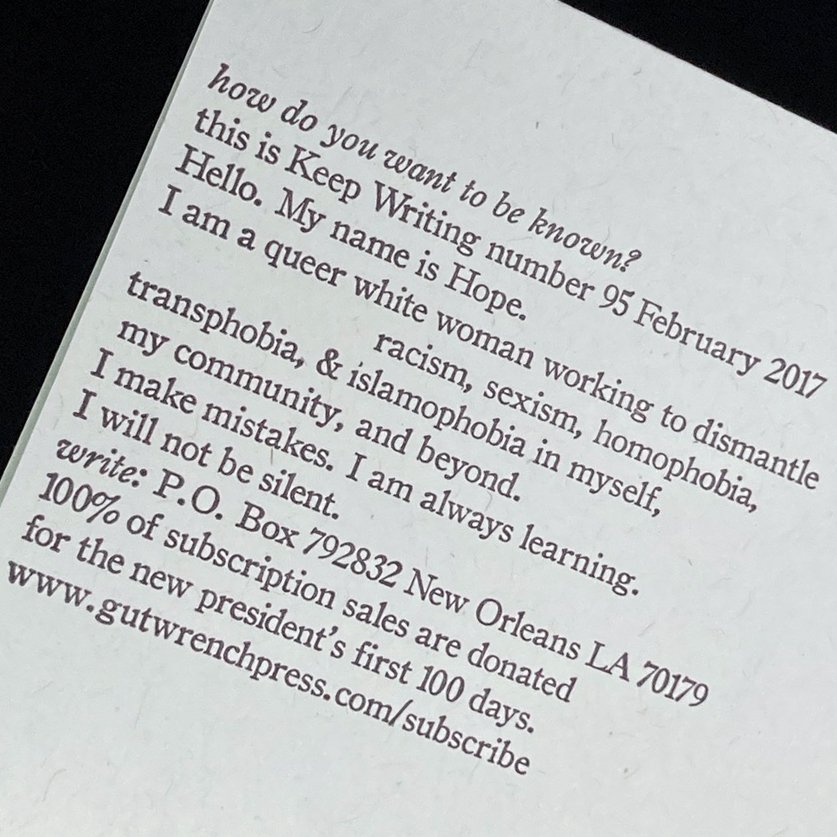 how do you want to be known?
this is Keep Writing number 95 February 2017
Hello. My name is Hope.
I am a queer white woman working to dismantle
racism, sexism, homophobia,
transphobia, & islamophobia in myself,
my community, and beyond.
I make mistakes. I am always learning.
I will not be silent.
write: P.O. Box 792832 New Orleans LA 70179
100% of subscription sales are donated
for the new president's first 100 days.
www.gutwrenchpress.com/subscribe